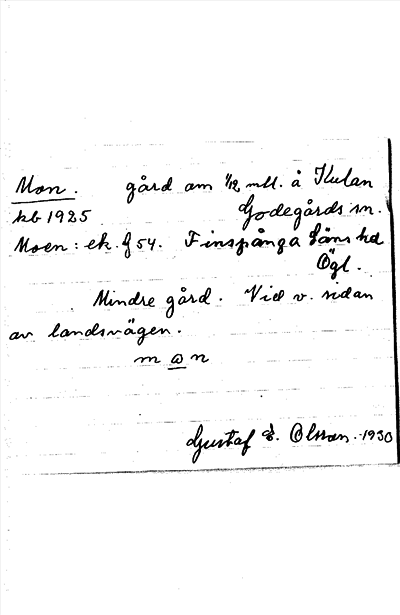 Mon. gård om 1/12 mtl. å Kulan
kb 1925 Godegårds sn.
Moen: ek. f 54. Finspånga läns hd
Ögl.
Mindre gård. Vid v. sidan
av landsvägen.
m o n
Gustaf E. Olsson. 1930